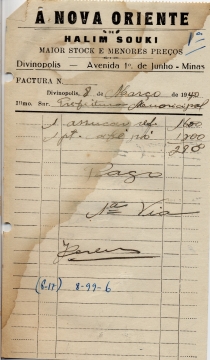 A NOVA ORIENTE
DE
HALIM SOUKI
MAIOR STOCK E MENORES PREÇOS
Divinopolis — Avenida 1º. de Junho - Minas
FACTURA N.
Divinopolis, 8 de Março de 1940
Illmo. Snr. Prefeitura Municipal
1 assucar 1600
1 pt. café pó 1200
2800
Pago
1ª Via
(8-17) 8-99-6